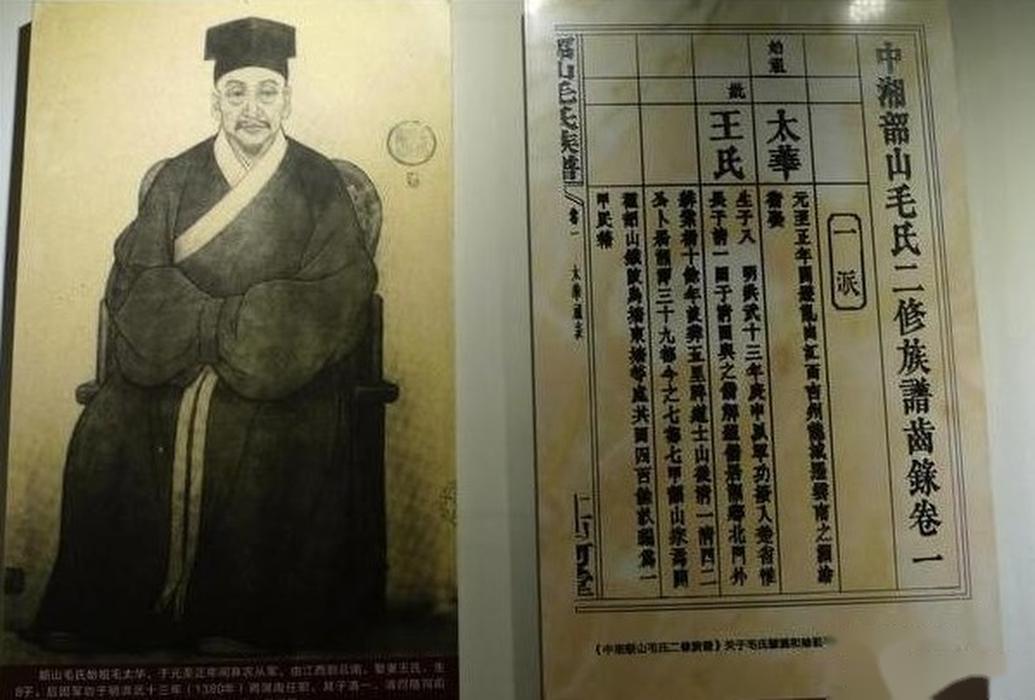 中湘韶山毛氏二修族譜齒錄卷一
一派
始祖
太華
妣
王氏
元至正年間避亂由江西吉州龍城遷雲南之瀾滄
衛娶
生子八 明洪武十三年庚申以軍功拨入楚省惟
長子清一四子清四與之偕解組僑居湘鄉北門外
緋紫橋十餘年後葬五里牌道士山後清一清四二
公卜居湘潭三十九都今之七都七甲韶山家焉開
種韶山鐵陂烏塘東塘等處共田四百餘畝編為一
甲民籍
韶山毛氏族譜
卷一 太華
《中湘韶山毛氏二修族譜》关于毛氏
韶山毛氏始祖毛太华,于元至正年间弃农从军,由江西到云南,娶妻王氏,生
8子。后因军功于明洪武十三年(1380年)南任职,其子清一、清四随同南